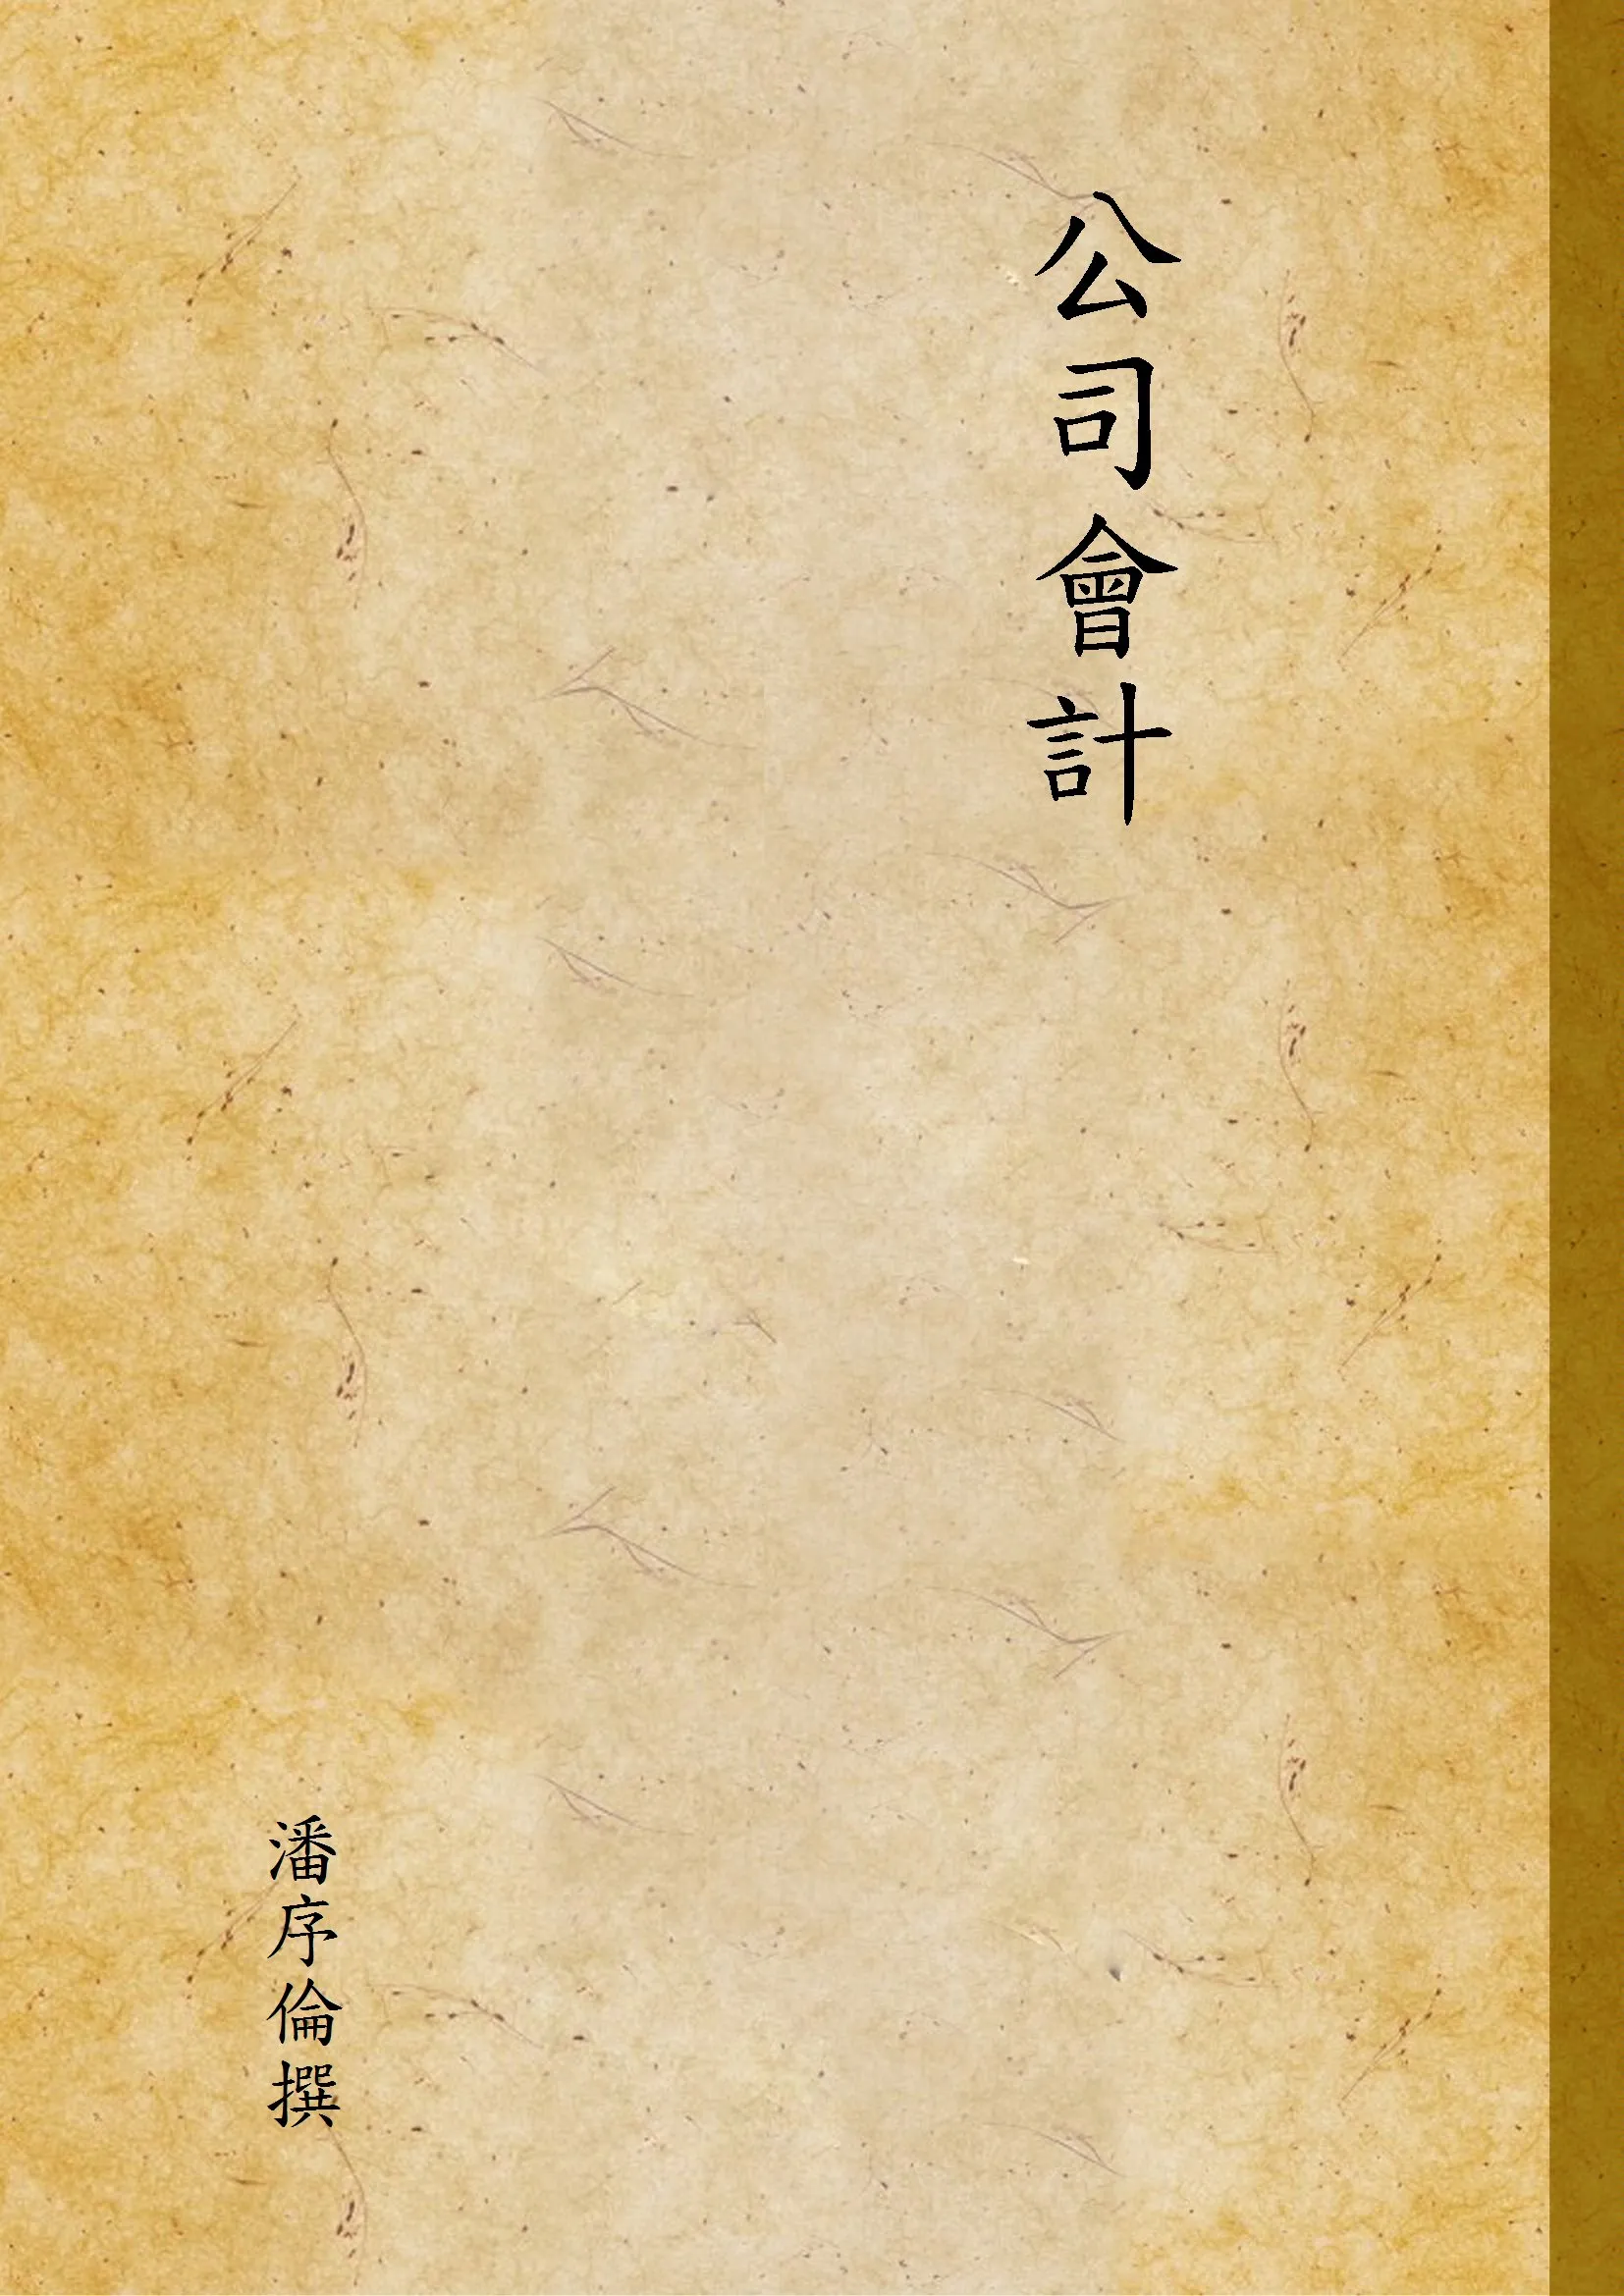 公司會計
潘序倫撰